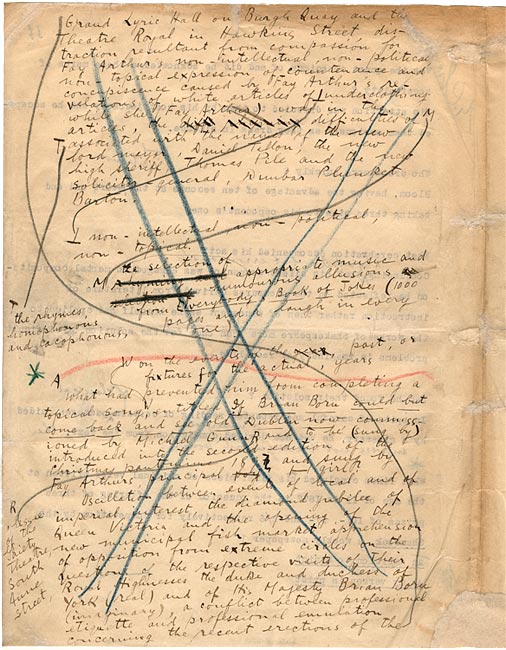 Grand Lyric Hall on Burgh Quay and the
Theatre Royal in Hawkins Street dis-
traction resultant from compassion for
Fay Arthur's non-intellectual, non-political
non-topical expression of countenance and
concupiscence caused by Fay Arthur's re-
velations of white articles of underclothing
while she (Fay Arthur) was in the
articles, the difficulties of
associated with the names of the new
lord mayor, Daniel Tallon, the new
high sheriff, Thomas Pile and the new
solicitor general, Dunbar Plunket
Barton
I non-intellectual, non-political,
non-topical,
M the selection of appropriate music and
humorous allusions
from Everybody's Book of Jokes (1000
pages and a laugh in every
one)
T
the rhymes
homophonous
and cacophonous,
W on the events of the past or
fixtures for the actual, years
A
What had prevented him from completing a
topical song If Brian Boru could but
come back and see old Dublin now commiss-
ioned by Michael Gunn R and to be (sung by)
introduced into the second edition of the
Christmas and sung by
Fay Arthur, principal girl?
Oscillation between events of local and of
imperial interest, the diamond jubilee of
Queen Victoria and the opening of the
new municipal fish market apprehension
of opposition from extreme circles on the
question of the respective visits of Their
Royal Highnesses the duke and duchess of
York (real) and of His Majesty Brian Boru
(imaginary), a conflict between professional
etiquette and professional emulation
concerning the recent erections of the
R
of the
Gaiety
Theatre,
South
Anne
street